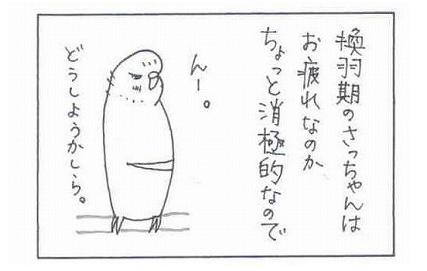 換羽期のさっちゃんは
お疲れなのか
ちょっと消極的なので
んー。
どうしようかしら。